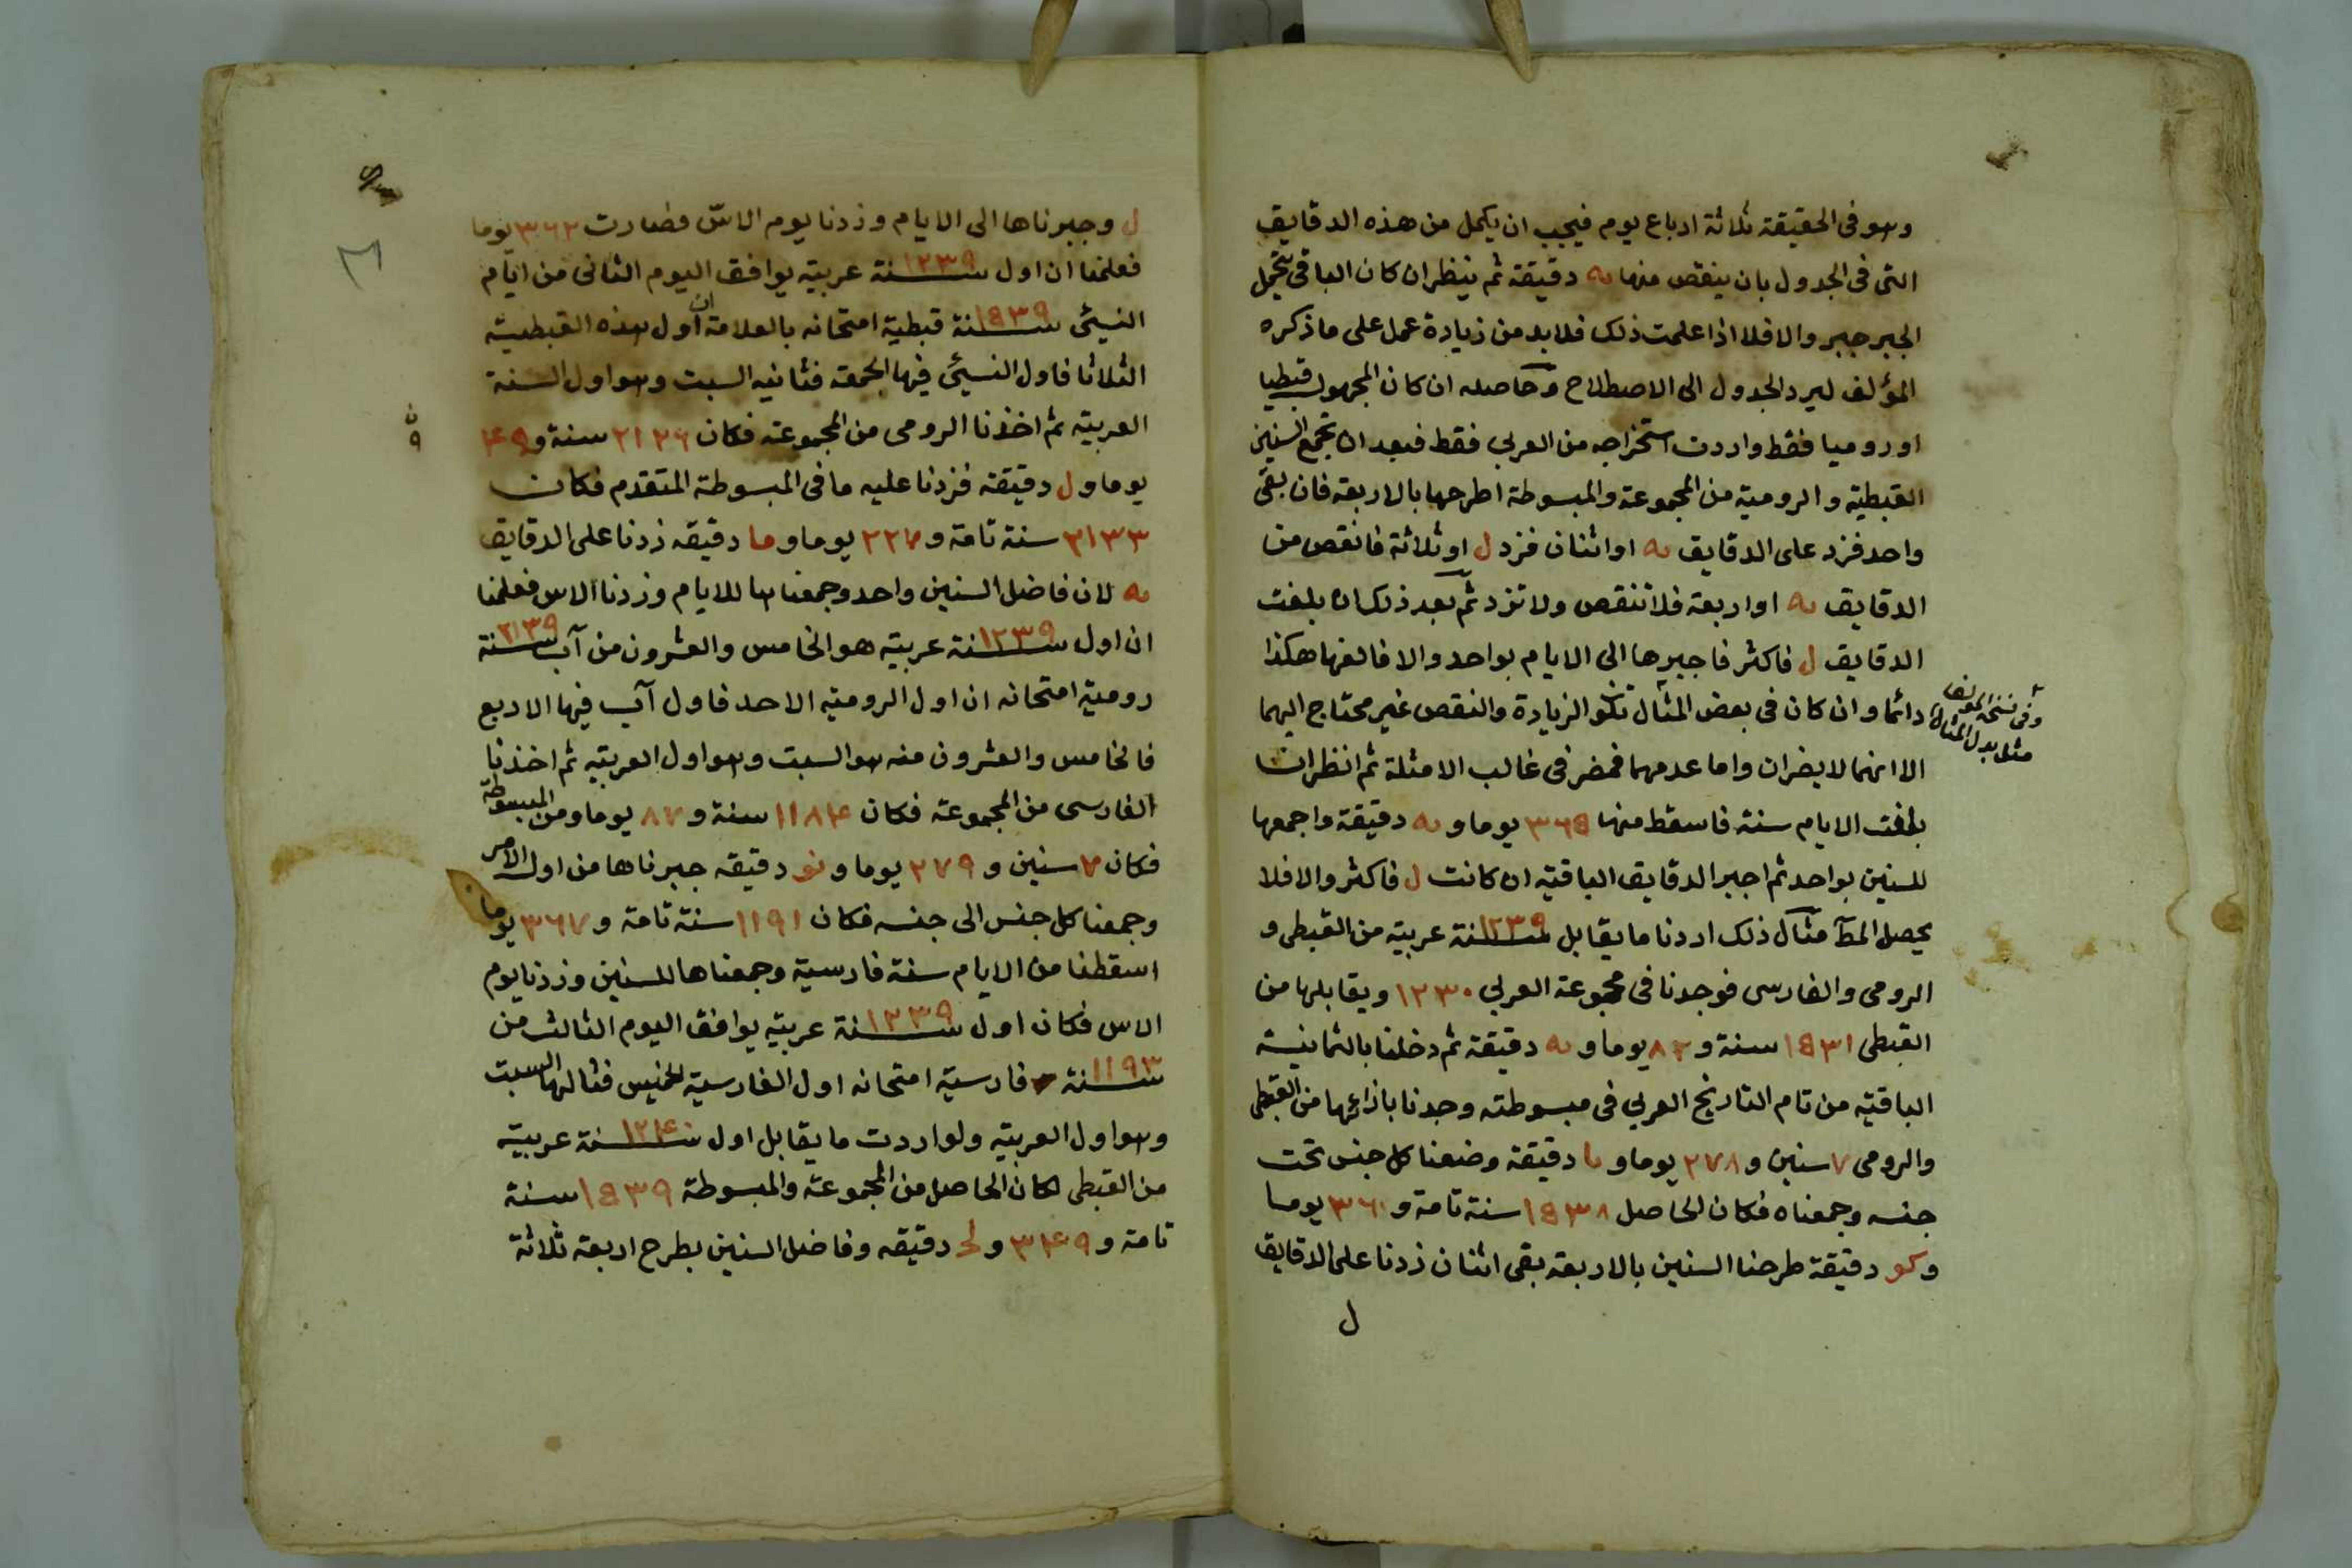 وهو فى الحقيقة ثلاثة ارباع يوم فيجب ان يكمل من هذه الدقايق
التى فى الجدول بان ينقص منها يه دقيقة ثم ينظر ان كان الباقى يحتمل
الجبر جبر والا فلا اذا علمت ذلك فلا بد من زيادة عمل على ما ذكره
المؤلف ليرد الجدول الى الاصطلاح وحاصله ان كان المجهول قبطيا
او روميا فقط واردت استخراجه من العربى فقط فبعد ان تجمع السنين
القبطية والرومية من المجموعة والمبسوطة اطرحها بالاربعة فان بقى
واحد فزد على الدقايق يه او اثنان فزد ل او ثلاثة فانقص من
الدقايق يه او اربعة فلا تنقص ولا تزد ثم بعد ذلك ان بلغت
الدقايق ل فاكثر فاجبرها الى الايام بواحد والا فالغها هكذا
دائما وان كان فى بعض المثال تكون الزيادة والنقص غير محتاج اليهما
وفى نسخة المؤلف
مثلا بدل المثال
الا انهما لا يضران واما عدمهما فمضر فى غالب الامثلة ثم انظر ان
بلغت الايام سنة فاسقط منها ٣٦٥ يوما و يه دقيقة واجمعها
للسنين بواحد ثم اجبر الدقايق الباقية ان كانت ل فاكثر والا فلا
يحصل المط مثال ذلك اردنا ما يقابل سنة ١٢٣٩ عربية من القبطى و
الرومى والفارسى فوجدنا فى مجموعة العربى ١٢٣٠ ويقابلها من
القبطى ١٥٣١ سنة و ٨٢ يوما و يه دقيقة ثم دخلنا بالثمانية
الباقية من تام التاريخ العربى فى مبسوطته وجدنا بازائها من القبطى
والرومى ٧ سنين و ٢٧٨ يوما و يا دقيقة وضعنا كل جنس تحت
جنسه وجمعناه فكان الحاصل ١٥٣٨ سنة تامة و ٣٦٠ يوما
و كو دقيقة طرحنا السنين بالاربعة بقى اثنان زدنا على الدقايق
ل
ل وجبرناها الى الايام وزدنا يوم الاس فصارت ٣٦٢ يوما
فعلمنا ان اول سنة ١٢٣٩ عربية يوافق اليوم الثانى من ايام
النسيئ سنة ١٥٣٩ قبطية امتحانه بالعلامة ان اول هذه القبطية
الثلاثا فاول النسيئ فيها الجمعة فثانيه السبت وهو اول السنة
العربية ثم اخذنا الرومى من المجموعة فكان ٢١٢٦ سنة و ٤٩
يوما و ل دقيقة فزدنا عليه ما فى المبسوطة المتقدم فكان
٢١٣٣ سنة تامة و ٣٢٧ يوما و ما دقيقه زدنا على الدقايق
يه لان فاضل السنين واحد وجمعناها للايام وزدنا الاس فعلمنا
ان اول سنة ١٢٣٩ عربية هو الخامس والعشرون من آب سنة ٢١٣٩
رومية امتحانه ان اول الرومية الاحد فاول آب فيها الاربع
فالخامس والعشرون منه هو السبت وهو اول العربية ثم اخذنا
الفارسى من المجموعة فكان ١١٨٤ سنة و ٨٧ يوما ومن المبسوطة
فكان ٧ سنين و ٢٧٩ يوما و نو دقيقه جبرناها من اول الامر
وجمعنا كل جنس الى جنسه فكان ١١٩١ سنة تامة و ٣٦٧ يوما
اسقطنا من الايام سنة فارسية وجمعناها للسنين وزدنا يوم
الاس فكان اول سنة ١٢٣٩ عربية يوافق اليوم الثالث من
سنة ١١٩٣ فارسية امتحانه اول الفارسية الخميس فثالثها السبت
وهو اول العربية ولو اردت ما يقابل اول سنة ١٢٤٠ عربية
من القبطى لكان الحاصل من المجموعة والمبسوطة ١٥٣٩ سنة
تامة و ٣٤٩ و لح دقيقه وفاضل السنين بطرح اربعة ثلاثة